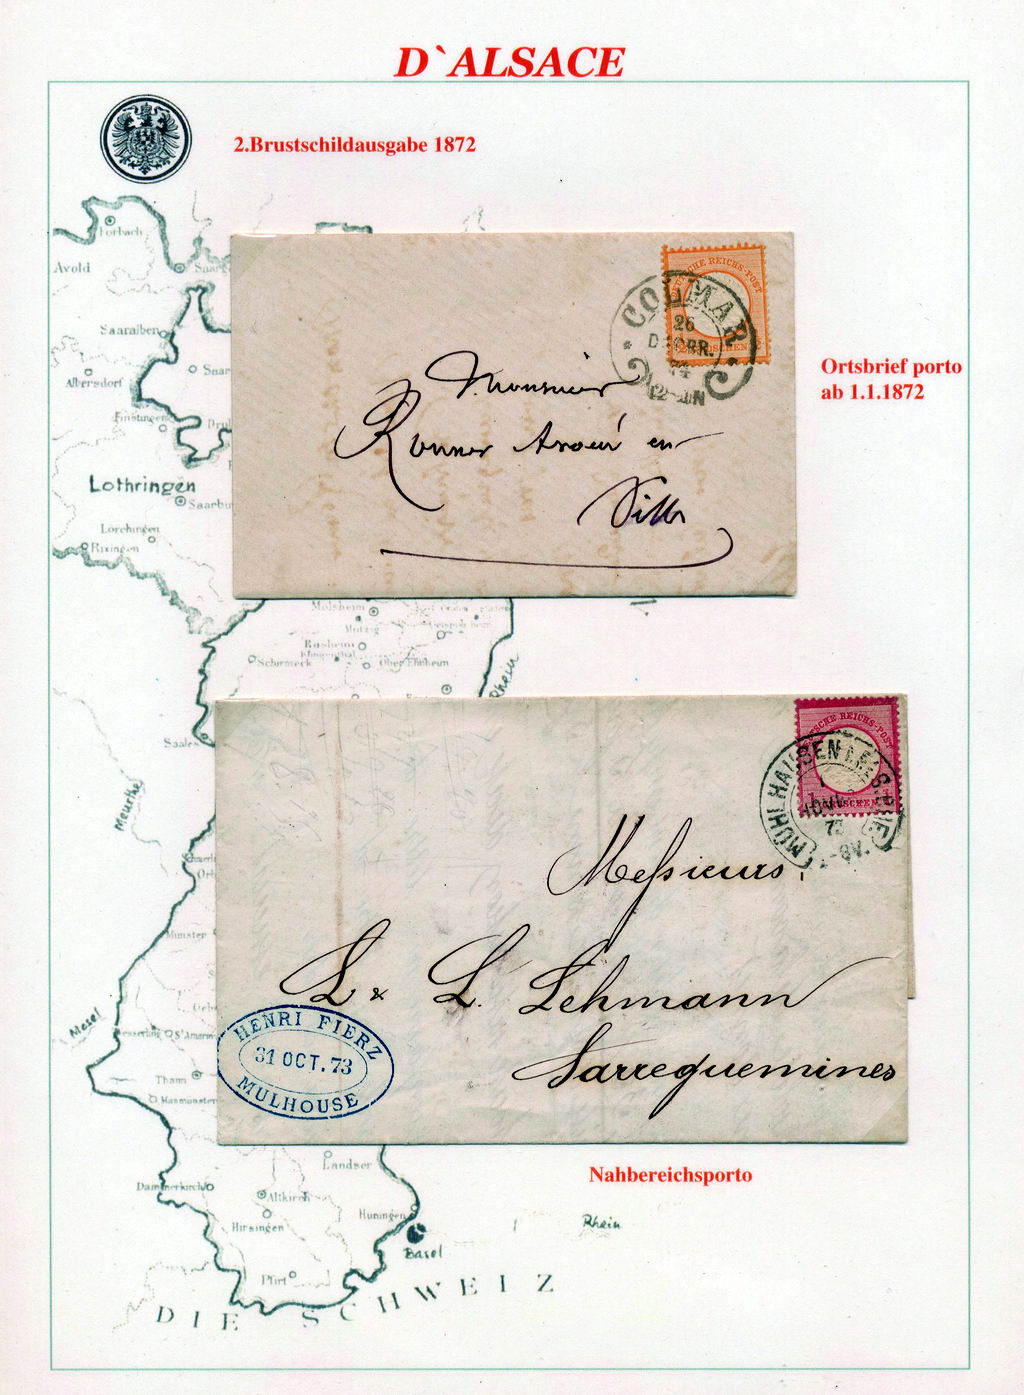 D`ALSACE
2.Brustschildausgabe 1872
Forbach
Avold
Saaralben
Albersdorf
Finstingen
Lothringen
Saarbu
Lorchingen
Rixingen
DEUTSCHE REICHS-POST
COLMAR
26
DECBR.
74
12-1N
Monsieur
Avoué en
Ville
Ortsbrief porto
ab 1.1.1872
Molsheim
Mutzig
Rosheim
Klingenthal
Schirmeck
Ober Ehnheim
Rhein
Saales
Meurthe
DEUTSCHE REICHS-POST
1 GROSCHEN 1
MÜHLHAUSEN I. ELS.
73
Messieurs,
L & L. Lehmann
Sarreguemines
HENRI FIERZ
31 OCT. 73
MULHOUSE
Münster
Mosel
St Amarin
Thann
Masmünster
Nahbereichsporto
Landser
Dammerkirch
Altkirch
Hirsingen
Huningen
Basel
Rhein
Pfirt
DIE SCHWEIZ